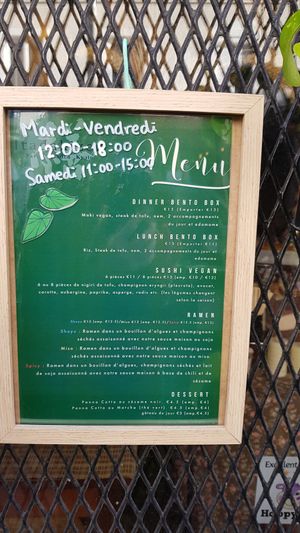 Mardi-Vendredi
12:00-18:00
Samedi 11:00-15:00
Menu
DINNER BENTO BOX
Maki vegan, steak de tofu, nem, 2 accompagnements
du jour et edamame
LUNCH BENTO BOX
Riz, Steak de tofu, nem, 2 accompagnements
du jour et edamame
SUSHI VEGAN
6 pièces €11 / 8 pièces
6 ou 8 pièces de nigiri de tofu, champignon eryngii (pleurote), avocat,
carotte, aubergine, paprika, asperge, radis etc. (les légumes changent
selon la saison)
RAMEN
Shoyu : Ramen dans un bouillon d'algues et champignons
séchés assaisonné avec notre sauce maison au soja
Miso : Ramen dans un bouillon d'algues et champignons
séchés assaisonné avec notre sauce maison au miso.
Spicy : Ramen dans un bouillon d'algues, champignons séchés et lait
de soja assaisonné avec notre sauce maison à base de chili et de
sésame
DESSERT
Panna Cotta au sésame noir, €4.5 (emp. €4)
Panna Cotta au Matcha (thé vert), €4.5 (emp. €4)
gâteau du jour
Excellent
Happy